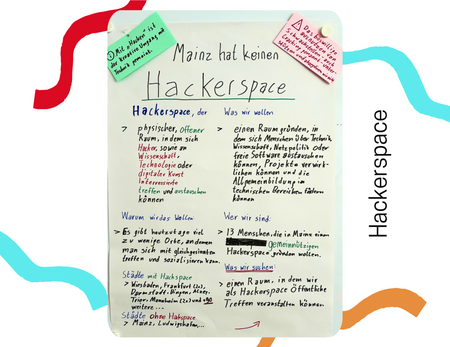 ① Mit „Hacken“ ist
der kreative Umgang mit
Technik gemeint.
Mainz hat keinen
Hackerspace
Hackerspace, der
> physischer, offener
Raum, in dem sich
Hacker, sowie an
Wissenschaft,
Technologie oder
digitaler Kunst
Interessierte
treffen und austauschen
können
Was wir wollen
> einen Raum gründen, in
dem sich Menschen über Technik
Wissenschaft, Netzpolitik oder
freie Software austauschen
können, Projekte verwirk-
lichen können und die
Allgemeinbildung im
technischen Bereichen fördern
können
Warum wir das wollen
> Es gibt heutzutage viel
zu wenige Orte, an denen
man sich mit gleichgesinnten
treffen und sozialisieren kann.
Wer wir sind:
> 13 Menschen, die in Mainz einen
gemeinnützigen
Hackerspace gründen wollen.
Städte mit Hackspace
> Wiesbaden, Frankfurt (2x),
Darmstadt, Bingen, Alzey,
Trier, Mannheim (2x) und 490
weitere...
Städte ohne Hakspace
> Mainz, Ludwigshafen,...
Was wir suchen:
> einen Raum, in dem wir
als Hackerspace Öffentliche
Treffen veranstalten können.
Hackerspace